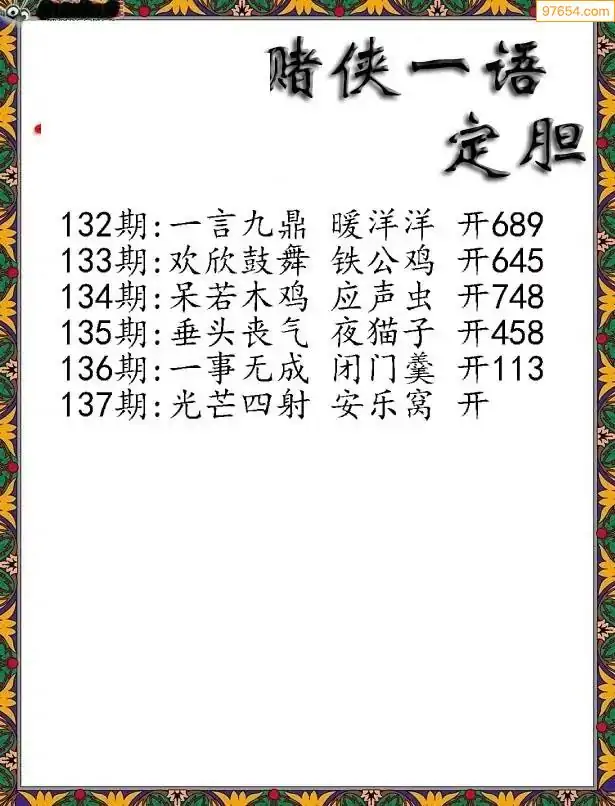 97654.com
赌侠一语
定胆
132期:一言九鼎 暖洋洋 开689
133期:欢欣鼓舞 铁公鸡 开645
134期:呆若木鸡 应声虫 开748
135期:垂头丧气 夜猫子 开458
136期:一事无成 闭门羹 开113
137期:光芒四射 安乐窝 开